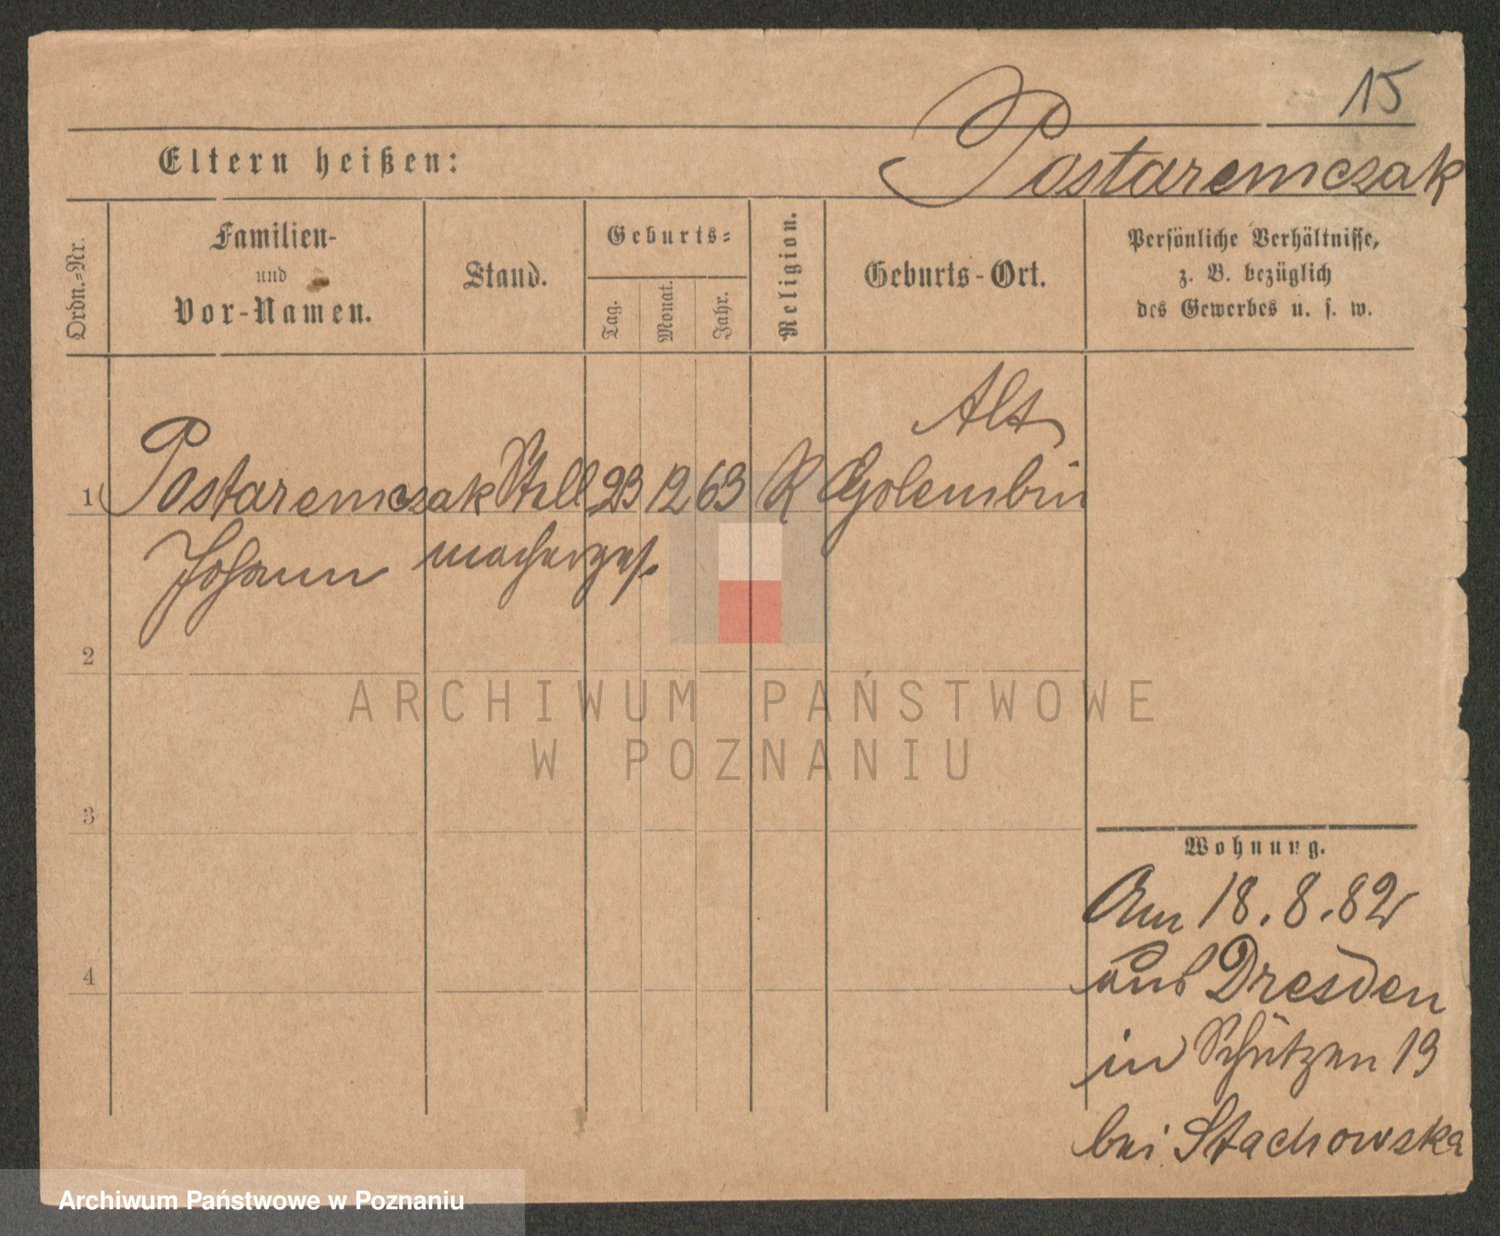 15
Eltern heißen:
Postaremczak
Ordn.-Nr.
Familien-
und
Vor-Namen.
Stand.
Geburts-
Tag.
Monat.
Jahr.
Religion.
Geburts-Ort.
Persönliche Verhältnisse,
z. B. bezüglich
des Gewerbes u. s. w.
Alt
1 Postaremczak Stell 23 12 63 R Golembin
Johann machergef.
2
ARCHIWUM PAŃSTWOWE
W POZNANIU
3
Wohnung.
Am 18.8.82
4
aus Dresden
in Schützen 19
bei Stachowska
Archiwum Państwowe w Poznaniu